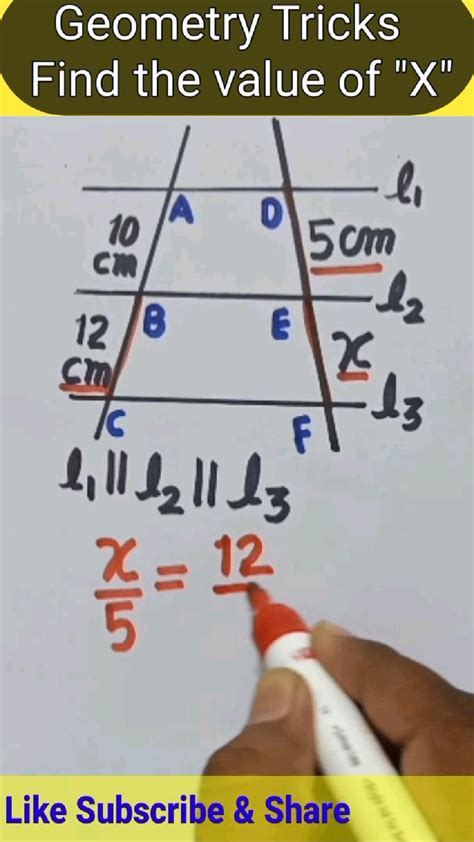 Geometry Tricks
Find the value of "X"
l₁
A
D
10
cm
5cm
l₂
B
E
12
cm
x
l₃
C
F
l₁ || l₂ || l₃
x/5 = 12
Like Subscribe & Share